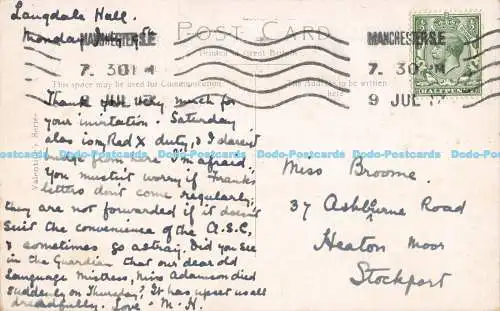 Langdale Hall.
Monday July 9th
POST CARD
Printed in Great Britain
This space may be used for Communication
The Address to be written
here
Valentine's Series
MANCHESTER S.E
7. 30 PM
MANCHESTER S.E
7. 30 PM
9 JUL 17
HALFPENNY
Thank you very much for
your invitation. Saturday
alas is my Red X duty, & I daren't
from here I'm afraid.
You mustn't worry if Frank's
letters don't come regularly;
they are not forwarded if it doesn't
suit the convenience of the A.S.C.
& sometimes go astray. Did you see
in the Guardian that our dear old
Language Mistress, Miss Adamson died
suddenly on Thursday? It has upset us all
dreadfully. Love. M. H.
Miss Broome.
37 Ashburne Road
Heaton Moor
Stockport
Prodo-Postcards